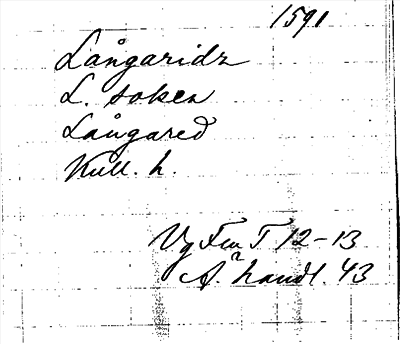 1591
Långaridz
L. soken
Långared
Kull. h.
Vg Fru T 12-13
A. handl. 43